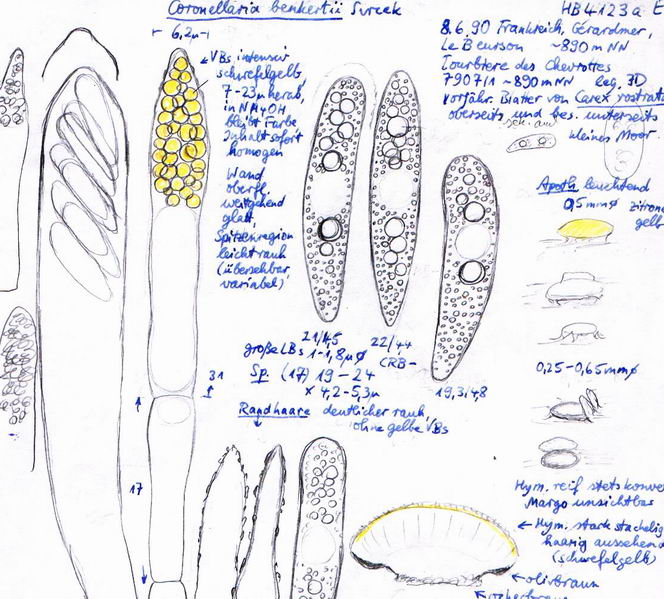 Coronellaria benkertii Svrcek
HB 4123a E
6,2µ
8.6.90 Frankreich, Gérardmer,
Le Beurson ~890 m NN
Tourbière des Chevrottes
7907/1 ~890 m NN leg.
vorjähr. Blätter von Carex rostrata
oberseits und bes. unterseits
kleines Moor
VBs intensiv
schwefelgelb
7-23µ herab,
in NH4OH
bleibt Farbe
Inhalt sofort
homogen
Wand
oberfl.
weitgehend
glatt,
Spitzenregion
leicht rauh
(übersehbar,
variabel)
Apoth leuchtend
0,5mmø zitronen
gelb
21/4,5
große LBs 1-1,8µø
22/4,4
CRB-
Sp. (17) 19-24
× 4,2-5,3µ
19,3/4,8
31
0,25-0,65mmø
Randhaare deutlicher rauh,
ohne gelbe VBs
17
Hym. reif stets konvex
Margo unsichtbar
Hym. stark stachelig
haarig aussehend
(schwefelgelb)
olivbraun